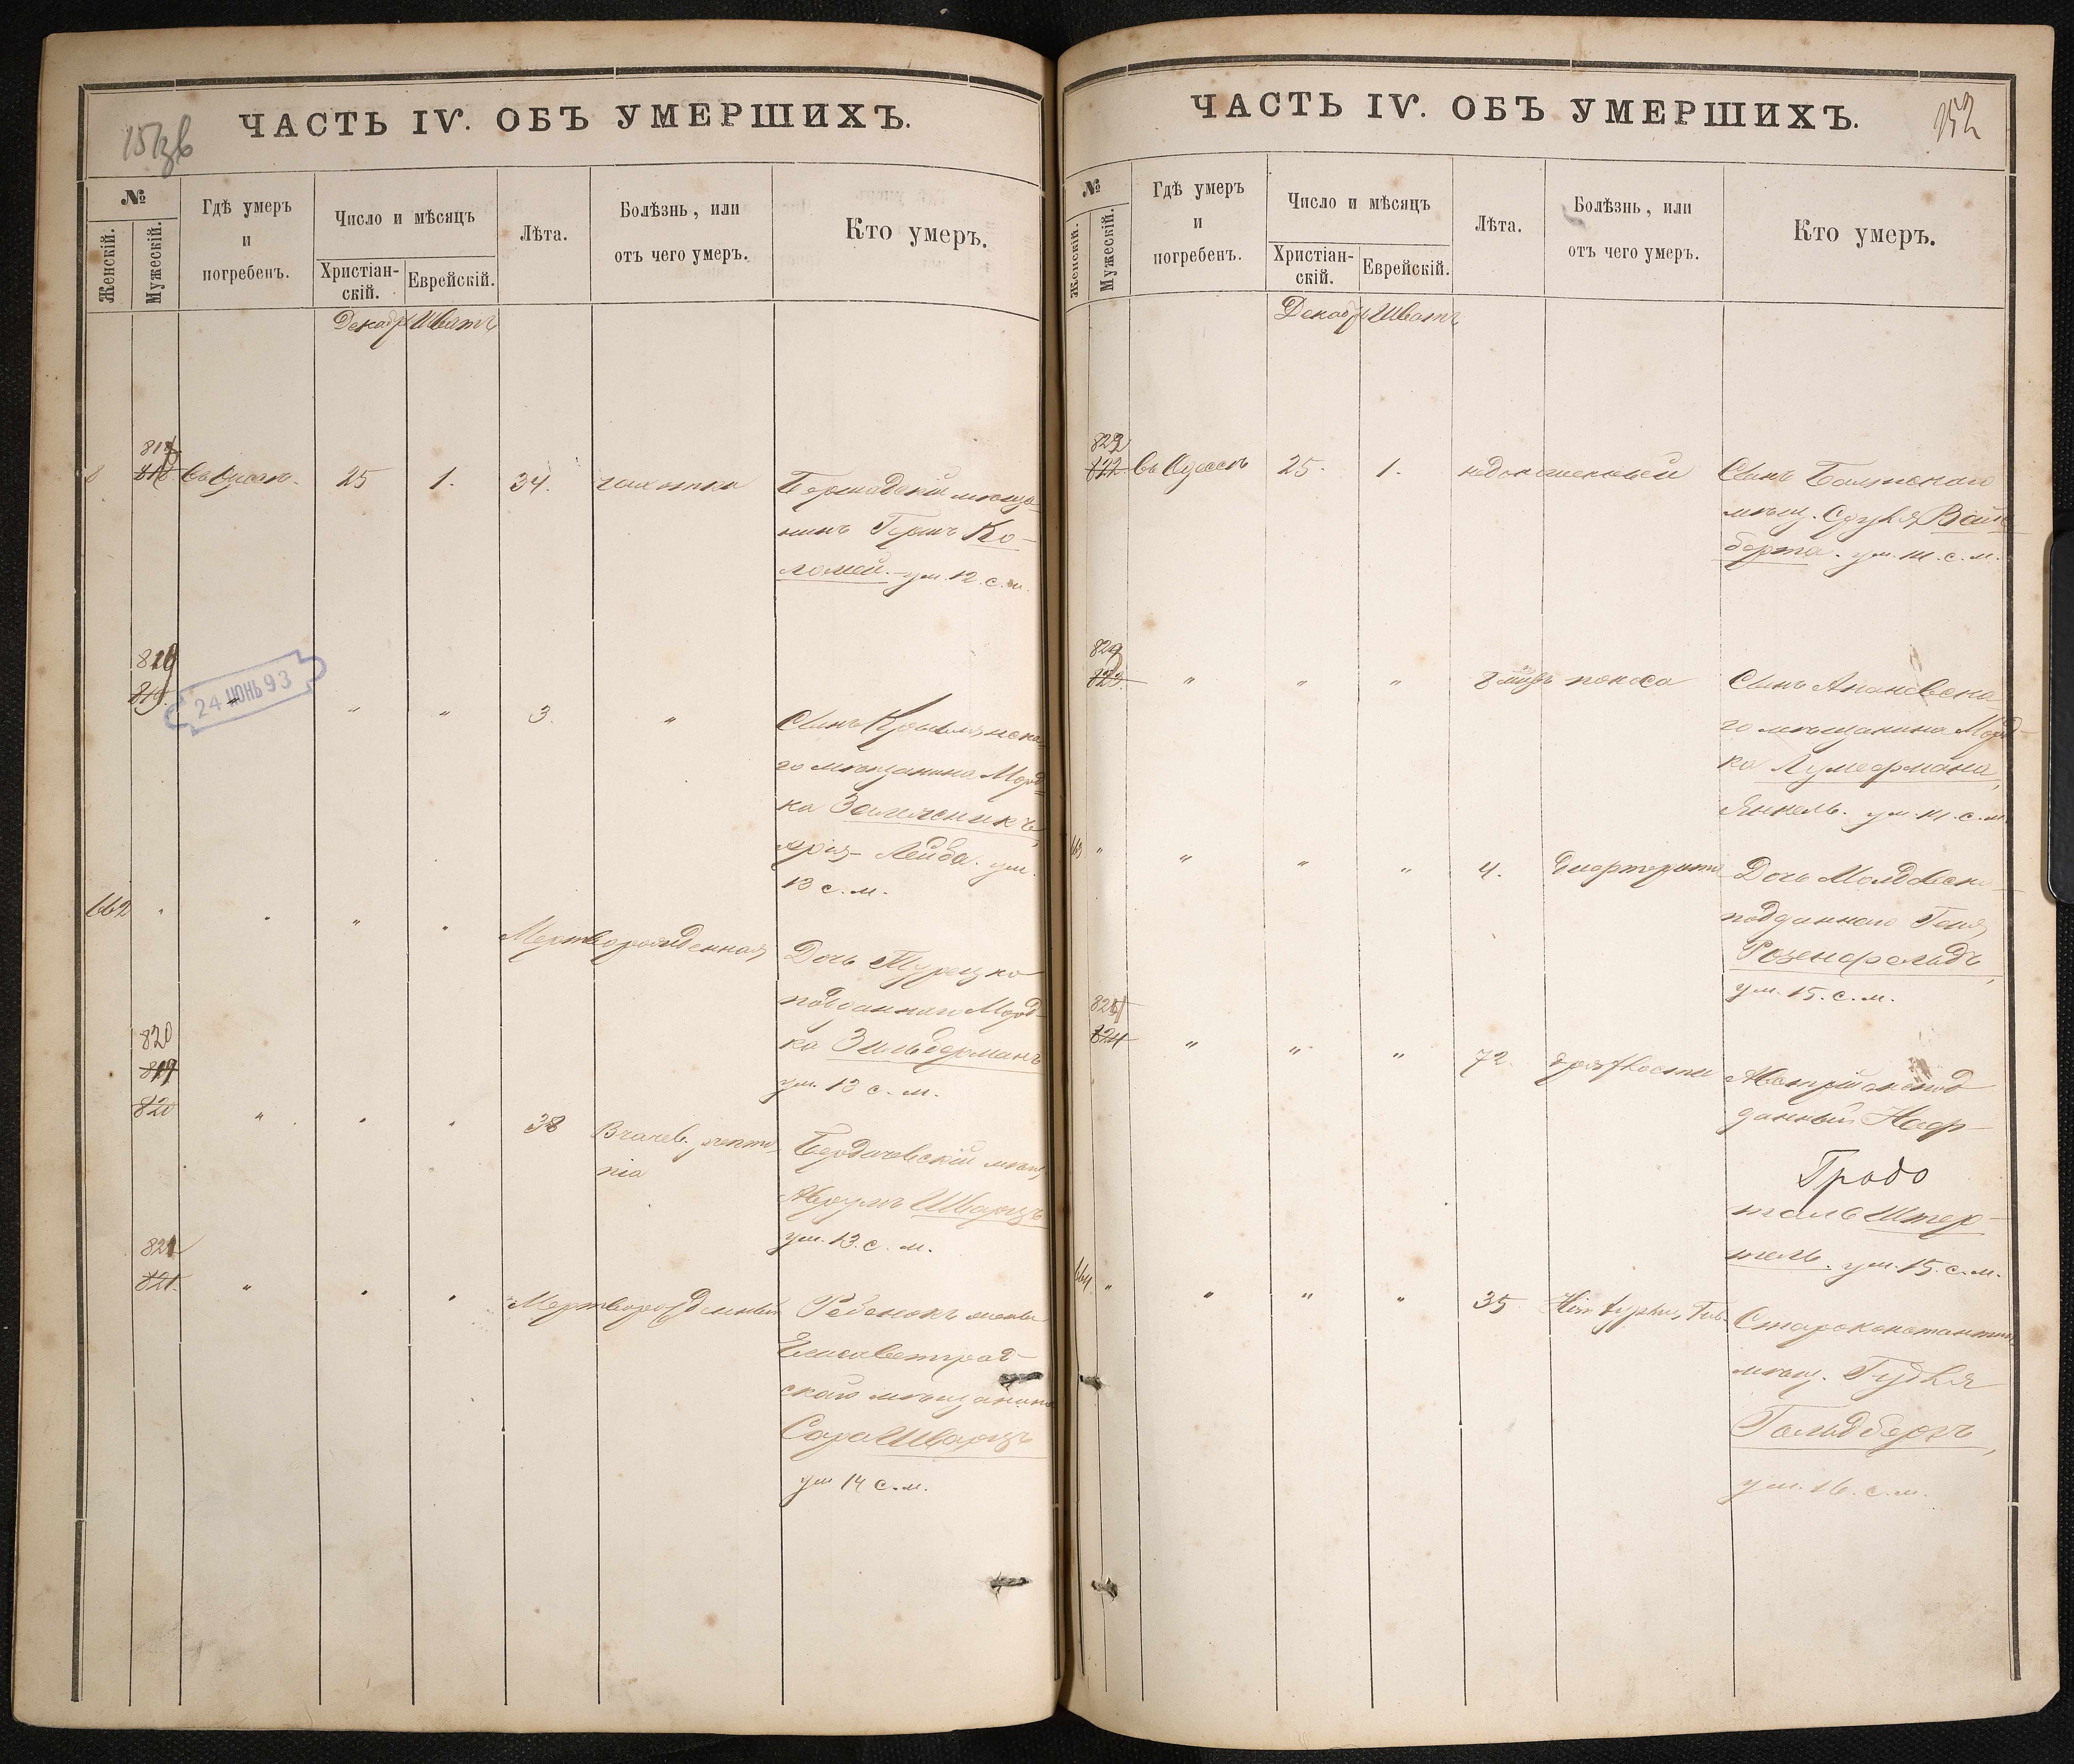 151 об
ЧАСТЬ IV. ОБЪ УМЕРШИХЪ.
№
Женскій.
Мужескій.
Гдѣ умеръ
и
погребенъ.
Число и мѣсяцъ
Христіан-
скій.
Еврейскій.
Лѣта.
Болѣзнь, или
отъ чего умеръ.
Кто умеръ.
Декабр Шватъ
818
въ Одессѣ 25 1. 34. чахотка Бершадскій мѣща-
нинъ Гершъ Ко-
ломей. ум. 12. с. м.
819
24 ИЮНЬ 93
" " 3. " Сынъ
го мѣщанина Морд-
ка Заличеникъ,
Лейба. ум.
13 с. м.
662 " " " " Мертворожденная Дочь Турецко
подданнаго Морд-
ка Зильберманъ
ум. 13 с. м.
820
819
820
" " " 38 Бердичевскій мѣщ.
піа
Аврумъ Шварцъ
ум. 13. с. м.
821
821.
" " " Мертворожденный Ребенокъ
Елисаветград-
скаго мѣщанина
Сара Шварцъ
ум 14 с. м.
152
ЧАСТЬ IV. ОБЪ УМЕРШИХЪ.
№
Женскій.
Мужескій.
Гдѣ умеръ
и
погребенъ.
Число и мѣсяцъ
Христіан-
скій.
Еврейскій.
Лѣта.
Болѣзнь, или
отъ чего умеръ.
Кто умеръ.
Декабр Шватъ
822
въ Одессѣ 25. 1. недоношенный Сынъ Балтскаго
мѣщ. Сруля Вайс-
берга. ум. 11. с. м.
823.
" " " 8 поноса Сынъ Ананьевска-
го мѣщанина Морд-
ка
Янкель. ум. 11. с. м.
663 " " " " 4. Дифтеритъ Дочь Молдавско-
подданнаго Геня
Розенфельдъ,
ум. 15. с. м.
824
" " " 72. дряхлости Австрійскопод
данный Наф-
Гродо
таль Штер-
тель. ум. 15. с. м.
664 " " " " 35 Староконстантин
мѣщ. Гудля
Гольдбергъ,
ум. 16. с. м.